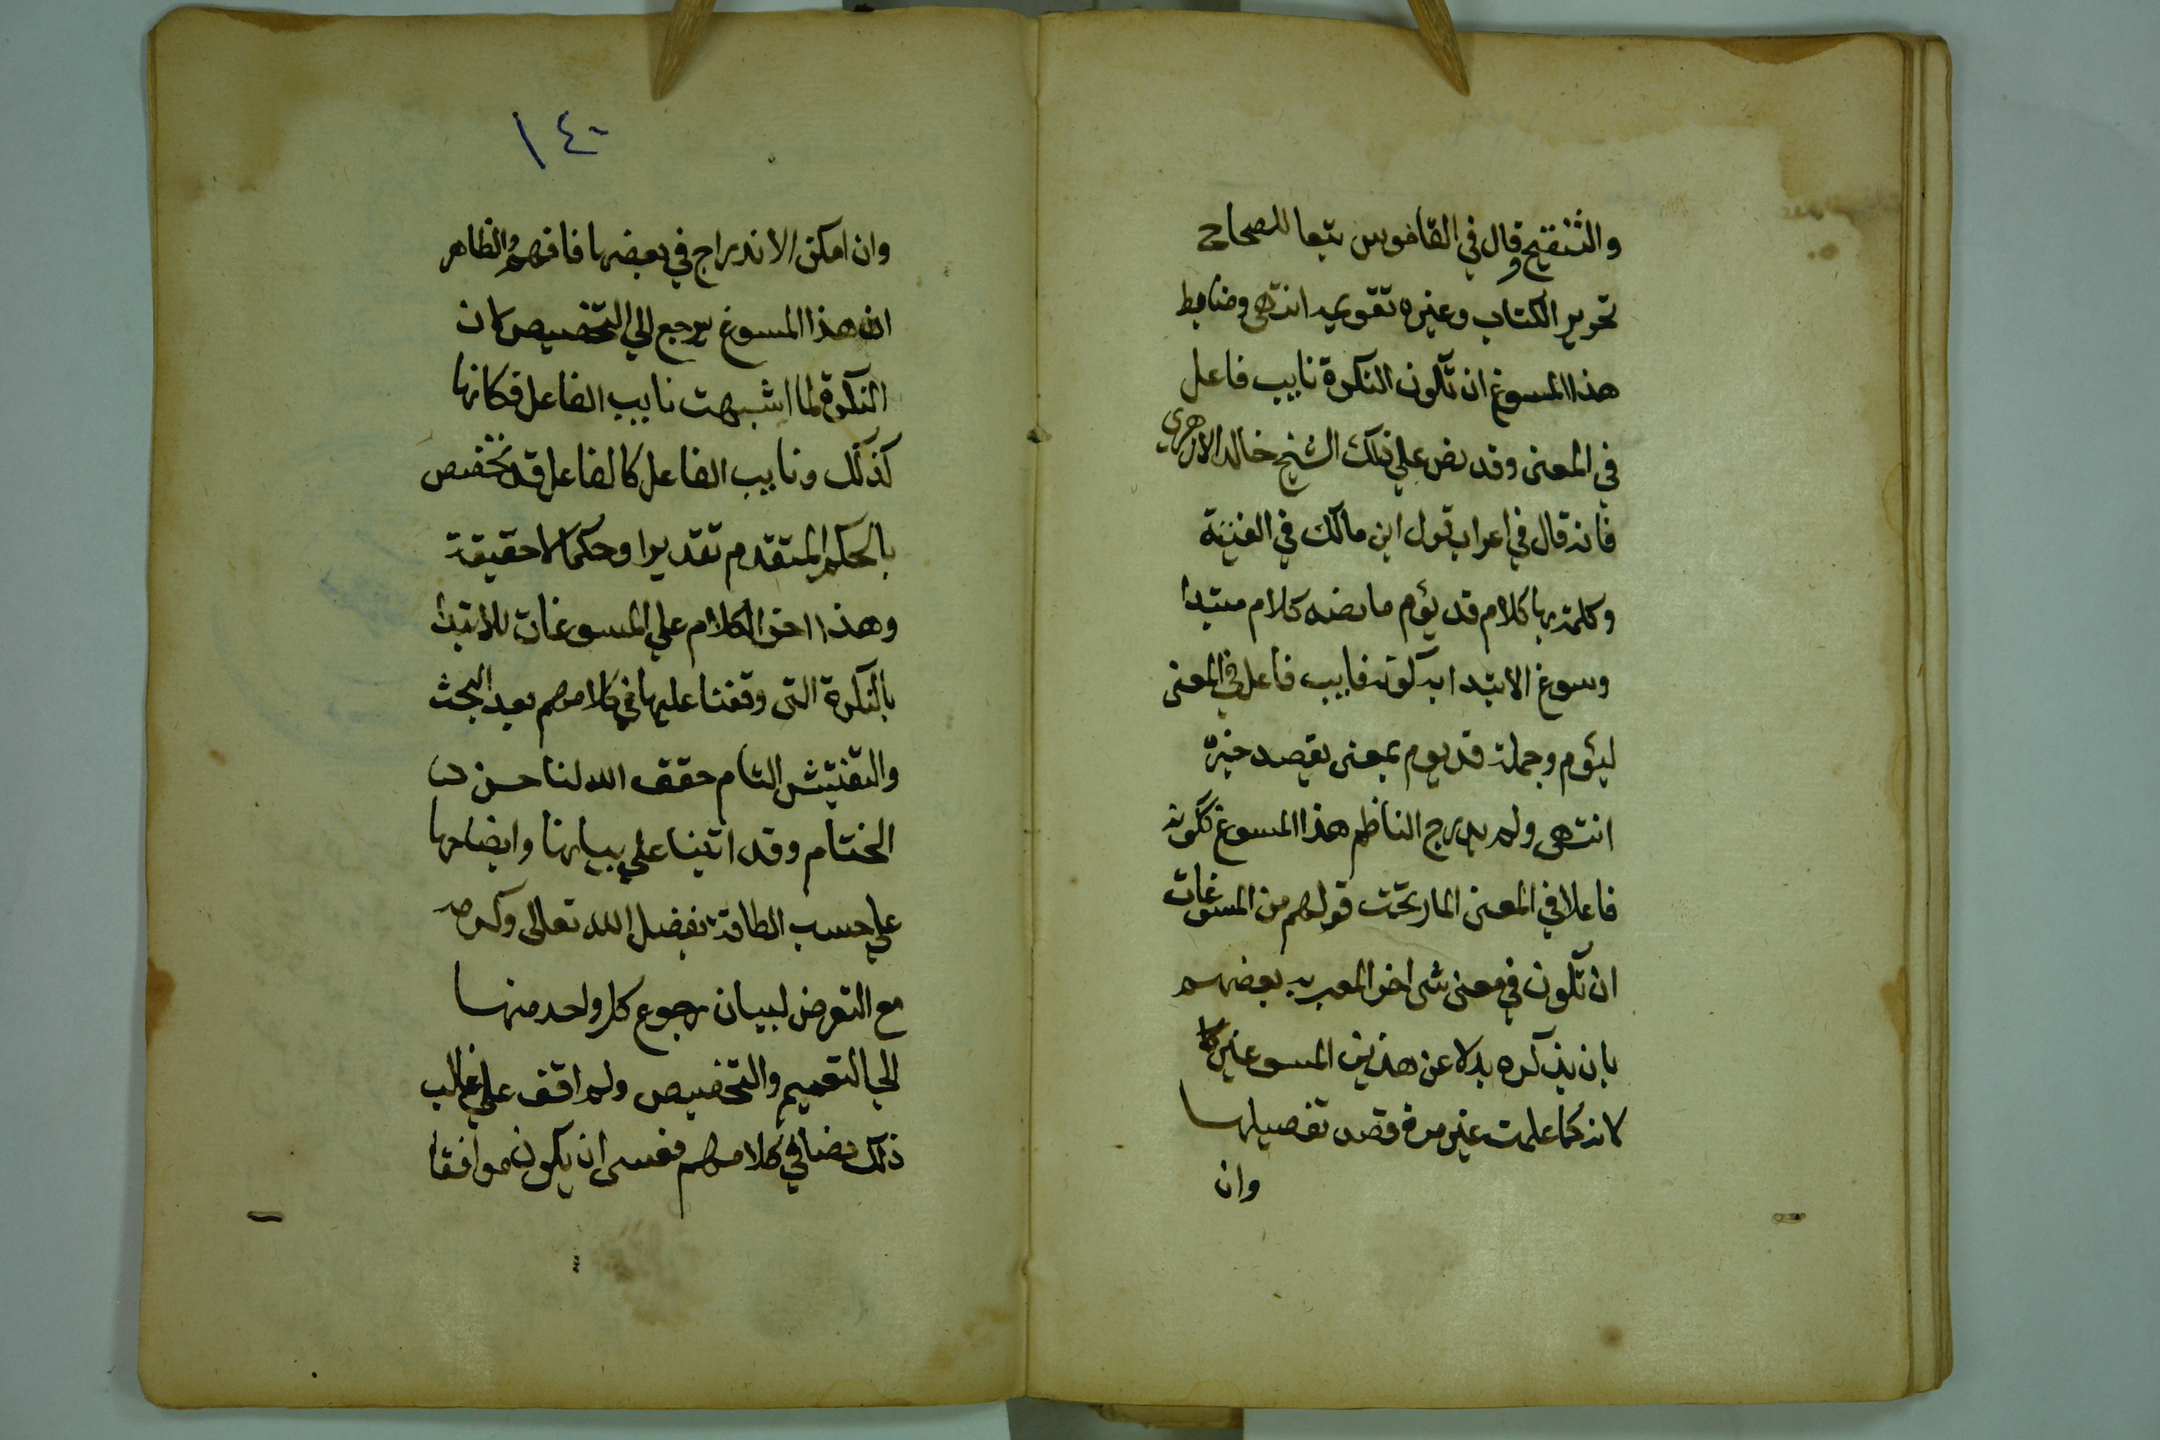 والتنقيح وقال في القاموس تبعا للصحاح
تحرير الكتاب وغيره تقويمه انتهى وضابط
هذا المسوغ ان تكون النكرة نايب فاعل
في المعنى وقد نص علي ذلك الشيخ خالد الازهري
فانه قال في اعراب قول ابن مالك في الفيته
وكلمة بها كلام قد يؤم ما نصه كلام مبتدا
وسوغ الابتدا به كونه نايب فاعل في المعنى
ليؤم وجملة قد يوم بمعنى يقصد خبره
انتهى ولم يدرج الناظم هذا المسوغ ككونه
فاعلا في المعنى المار تحت قولهم من المسوغات
ان تكون في معنى شى اخر المعبر به بعضهم
بان يذكره بدلا عن هذين المسوغين
لانه كما علمت غير مرة قصد تفصيلها
وان
١٤٠
وان امكن الاندراج في بعضها فافهم والظاهر
ان هذا المسوغ يرجع الي التخصيص كان
النكرة لما اشبهت نايب الفاعل فكانها
كذلك ونايب الفاعل كالفاعل قد تخصص
بالحكم المتقدم تقديرا وحكما لا حقيقة
وهذا اخر الكلام علي المسوغات للابتدا
بالنكرة التى وقفنا عليها في كلامهم بعد البحث
والتفتيش التام حقق الله لنا حسن
الختام وقد اتينا علي بيانها وايضاحها
علي حسب الطاقة بفضل الله تعالى وكرمه
مع التعرض لبيان رجوع كل واحد منها
الي التعميم والتخصيص ولم اقف علي غالب
ذلك نصا في كلامهم فعسى ان يكون موافقا